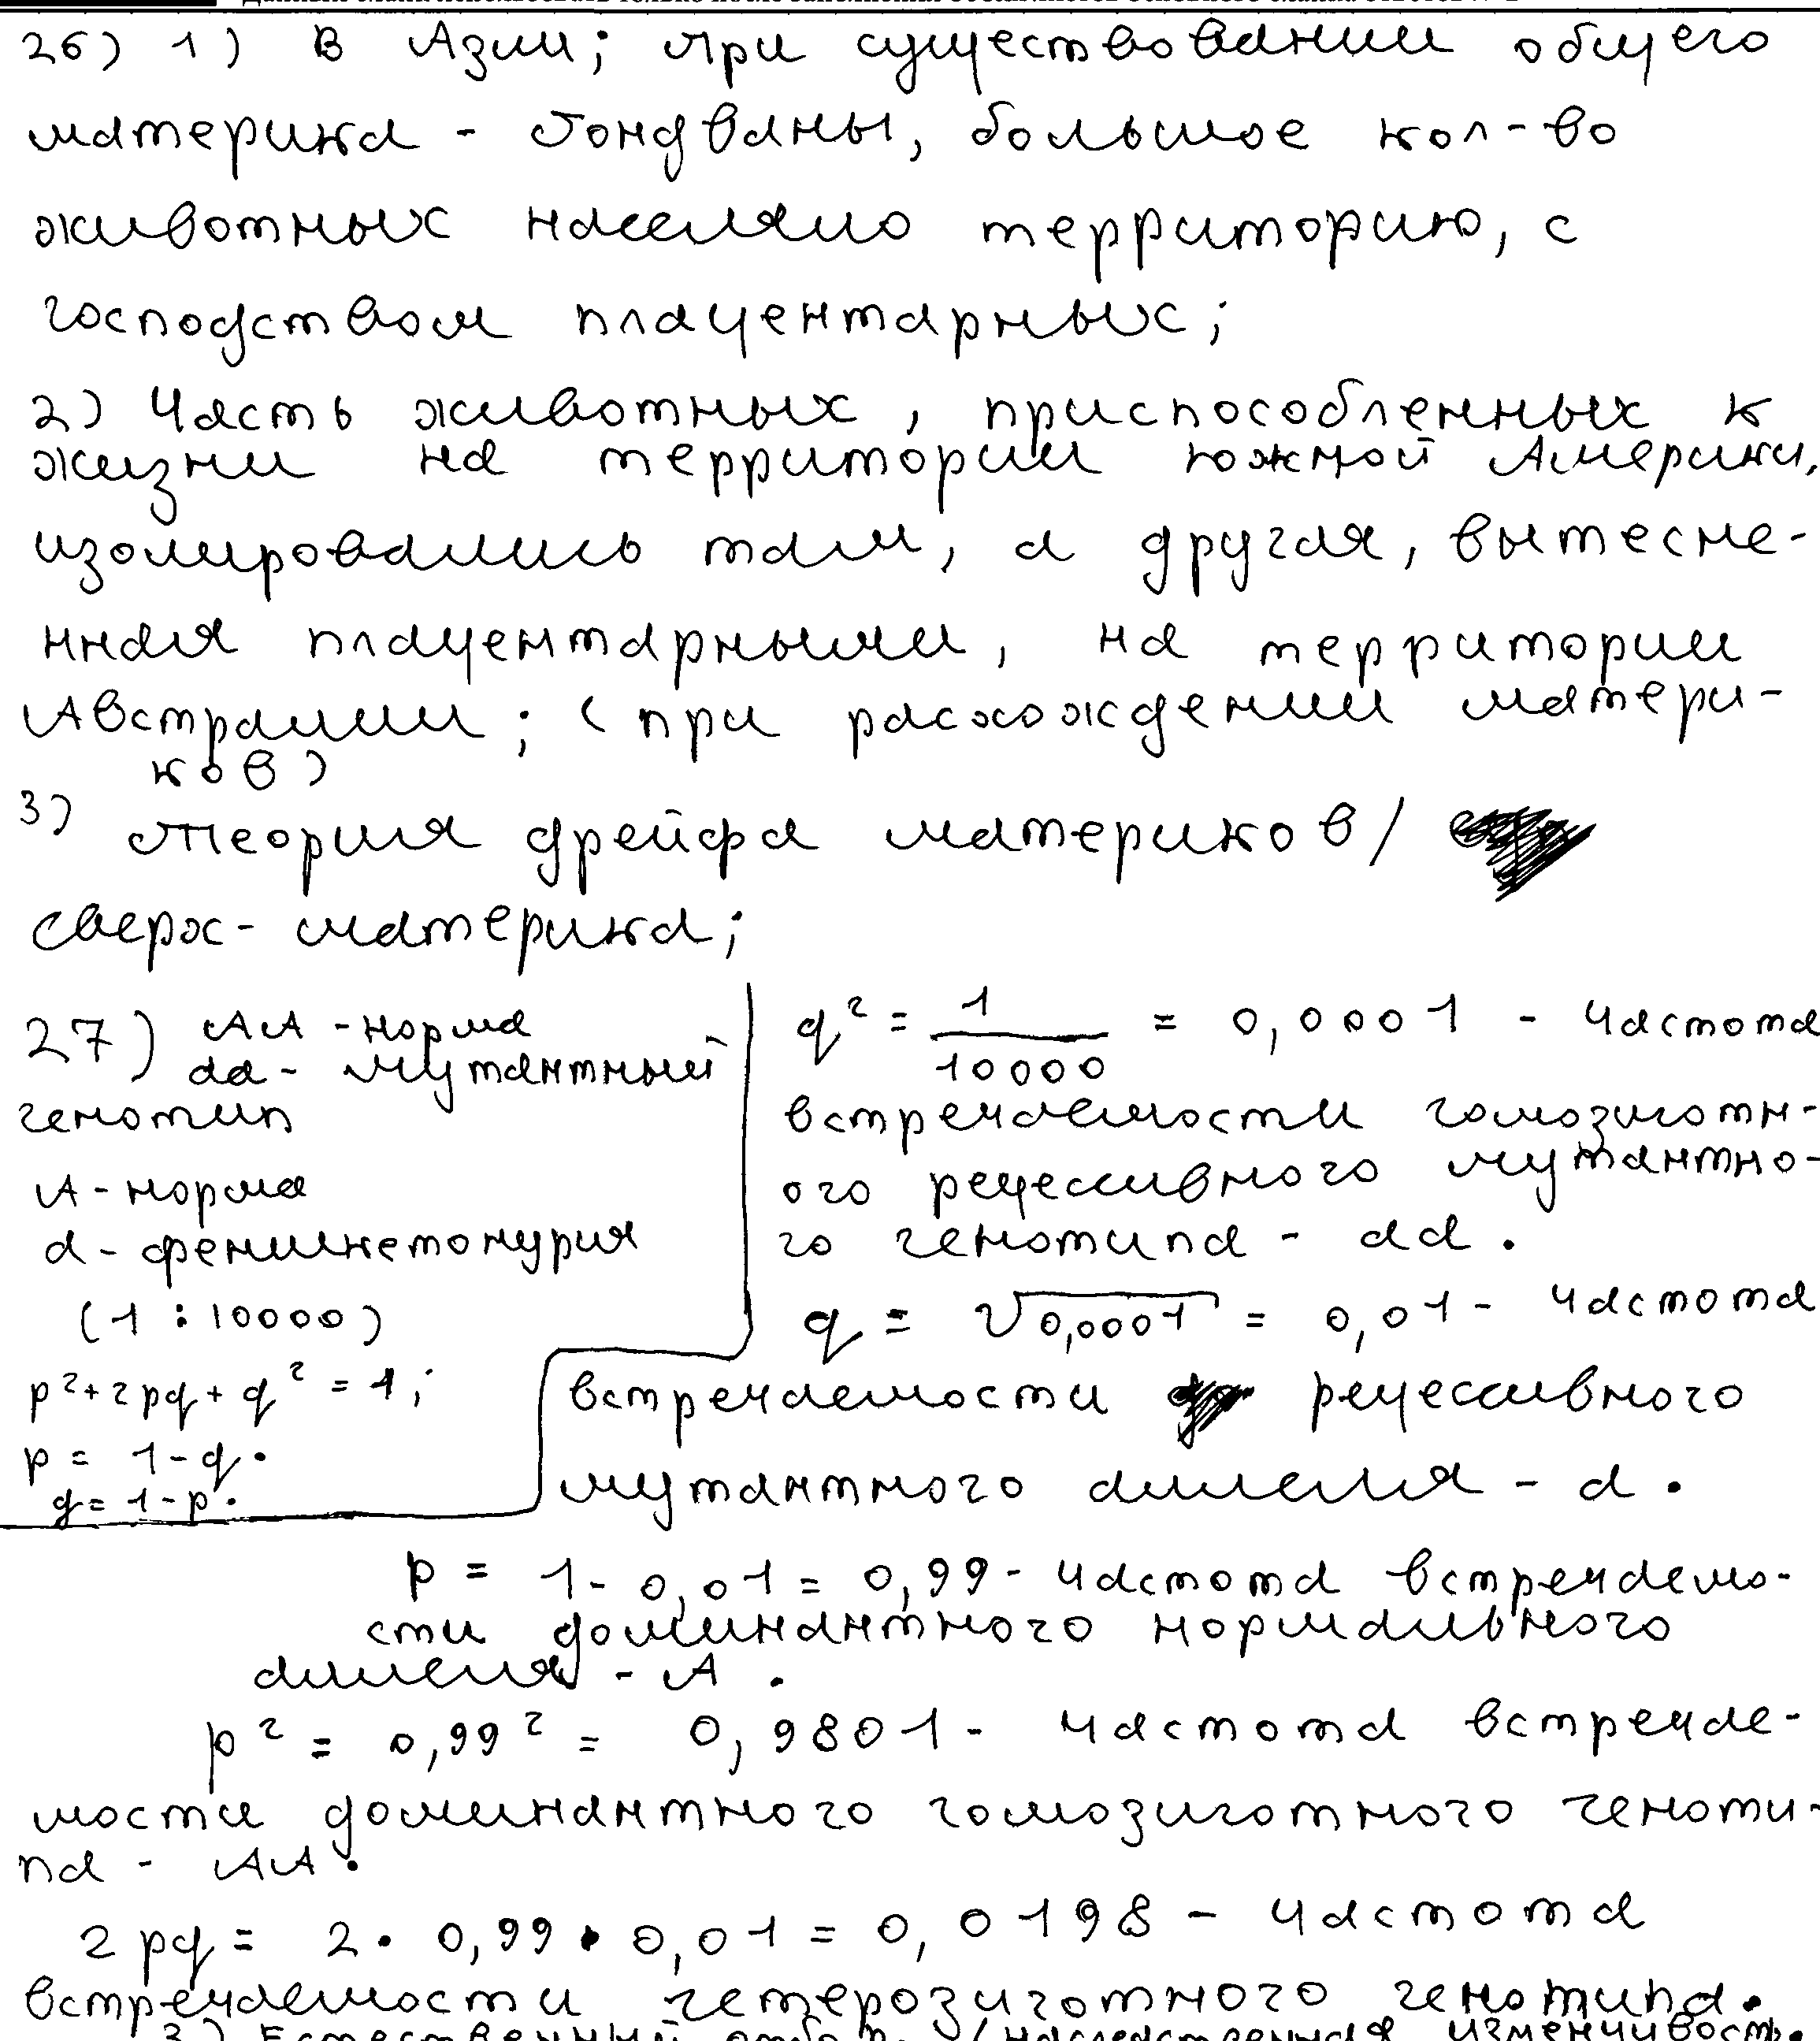 26) 1) В Азии; при существовании общего
материка - Гондваны, большое кол-во
животных населяло территорию, с
господством плацентарных;
2) Часть животных, приспособленных к
жизни на территории южной Америки,
изолировались там, а другая, вытесне-
нная плацентарными, на территории
Австралии; (при расхождении матери-
ков)
3) Теория дрейфа материков/
сверх-материка;
27) АА - норма
аа - мутантный
генотип
А - норма
а - фенилкетонурия
(1 : 10000)
p² + 2pq + q² = 1;
p = 1 - q.
q = 1 - p.
q² = 1/10000 = 0,0001 - частота
встречаемости гомозиготн-
ого рецессивного мутантно-
го генотипа - аа.
q = √0,0001 = 0,01 - частота
встречаемости рецессивного
мутантного аллеля - а.
p = 1 - 0,01 = 0,99 - частота встречаемо-
сти доминантного нормального
аллеля - А.
p² = 0,99² = 0,9801 - частота встречае-
мости доминантного гомозиготного геноти-
па - АА.
2pq = 2 · 0,99 · 0,01 = 0,0198 - частота
встречаемости гетерозиготного генотипа.
3) Естественный отбор. (наследственная изменчивость.